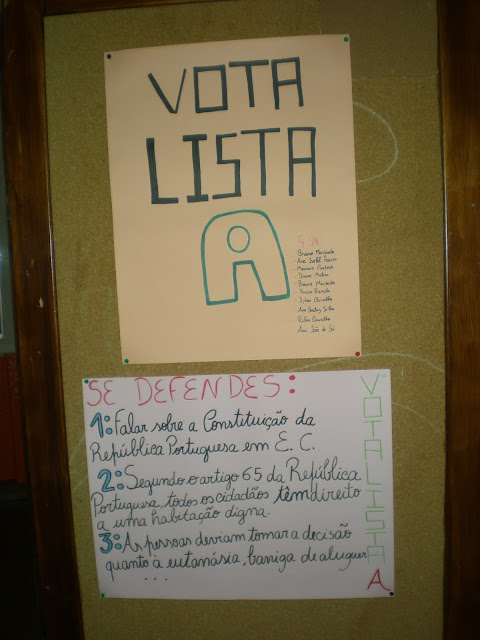 VOTA
LISTA
A
Ana Isabel
Mariana
Bruna Machado
Dylan Carvalho
Ana Beatriz Silva
Rúben Carvalho
Ana João de Sá
SE DEFENDES:
1: Falar sobre a Constituição da
República Portuguesa em E. C.
2: Segundo o artigo 65 da República
Portuguesa, todos os cidadãos têm direito
a uma habitação digna.
3: As pessoas deviam tomar a decisão
quanto à eutanásia, baniga de aluguer
...
VOTA LISTA
A